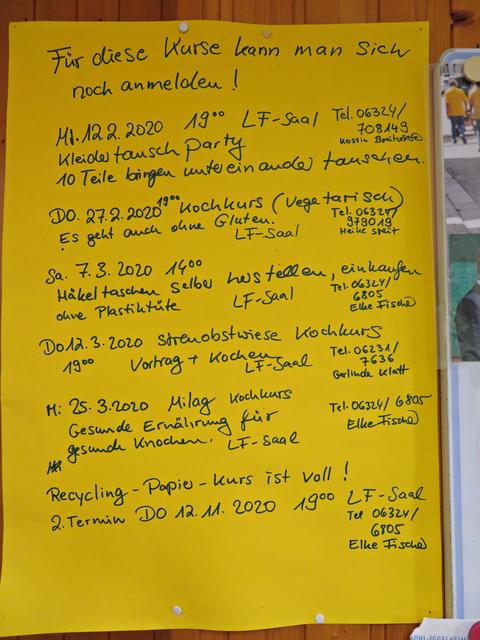 Für diese Kurse kann man sich
noch anmelden!
Mi. 12.2.2020 19⁰⁰ LF-Saal Tel. 06324/
708149
Kleidertausch Party
10 Teile bringen untereinander tauschen.
DO. 27.2.2020 19⁰⁰ Kochkurs (Vegetarisch)
Es geht auch ohne Gluten. Tel. 06327/
979019
LF-Saal Heike Speit
Sa. 7.3.2020 14⁰⁰
Häkeltaschen selber herstellen, einkaufen
ohne Plastiktüte LF-Saal Tel. 06324/
6805
Elke Fische
Do 12.3.2020 Streuobstwiese Kochkurs
19⁰⁰ Vortrag + Kochen LF-Saal Tel. 06231/
7636
Gerlinde Klatt
Mi 25.3.2020 Milag Kochkurs
Gesunde Ernährung für Tel. 06324/6805
gesunde Knochen. LF-Saal Elke Fische
Recycling-Papier-Kurs ist voll!
2. Termin DO 12.11.2020 19⁰⁰ LF-Saal
Tel 06324/
6805
Elke Fische